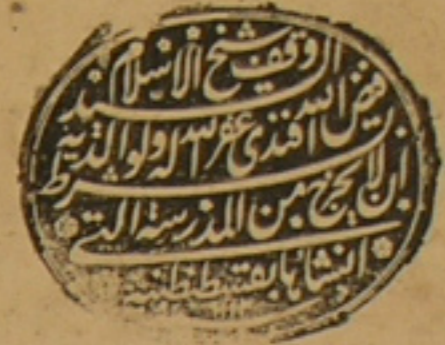 وقف شيخ الاسلام السيد
فيض الله افندى غفر الله له ولوالديه
بشرط ان لا يخرج من المدرسة التى
انشاها بقسطنطنيه